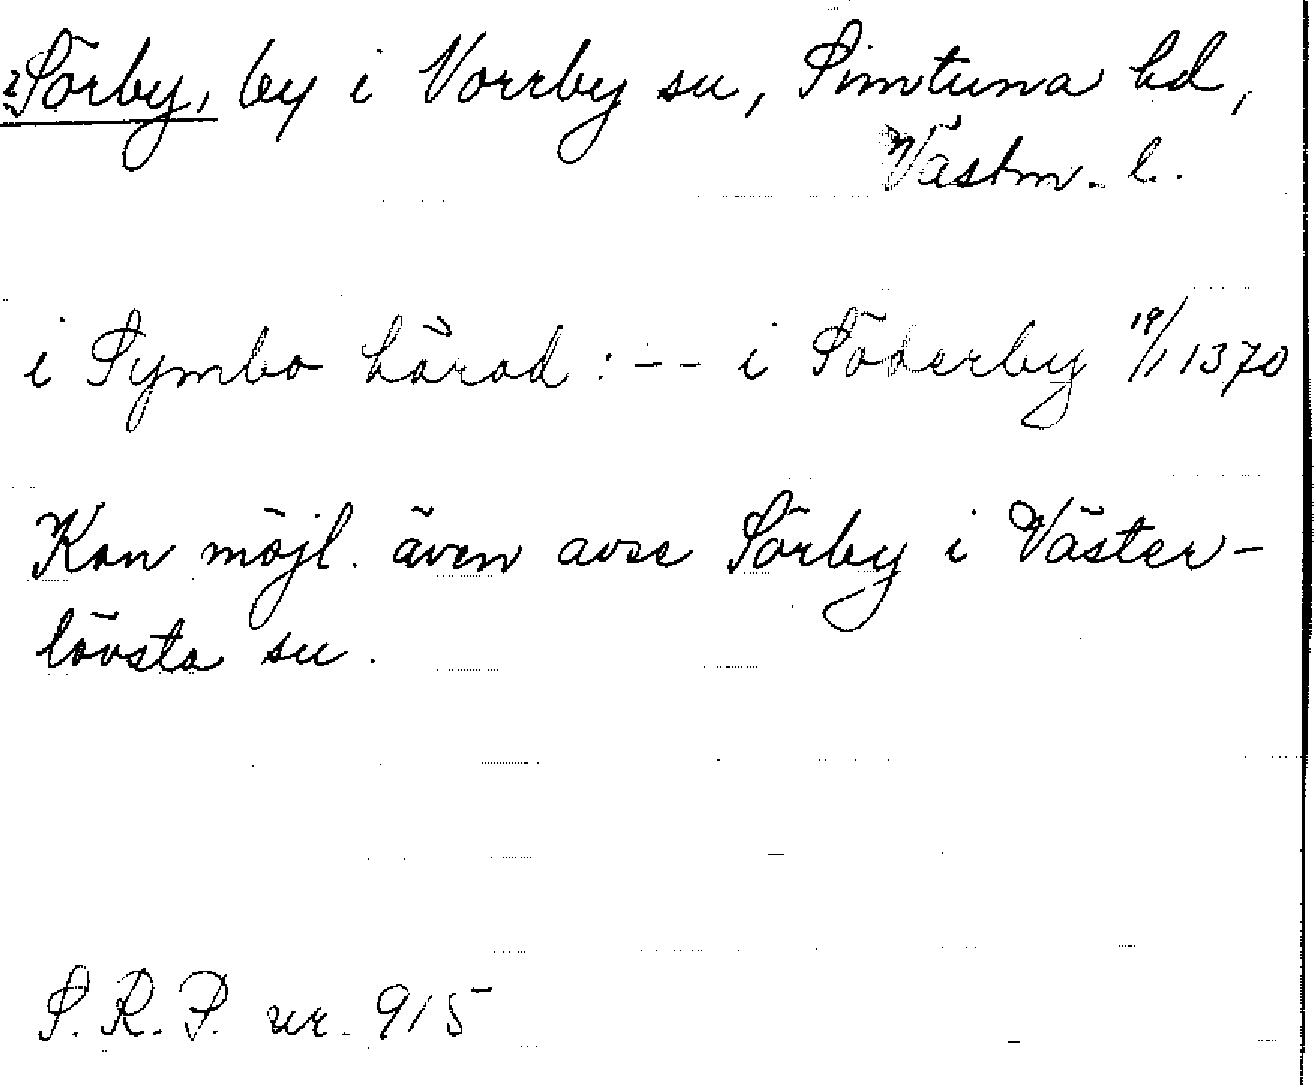 2. Sörby, by i Norrby sn, Simtuna hd,
Västm. l.
i Symbo härad : - - i Söderby 19/1 1370
Kan möjl. även avse Sörby i Väster-
lövsta sn.
S. R. P. nr. 915